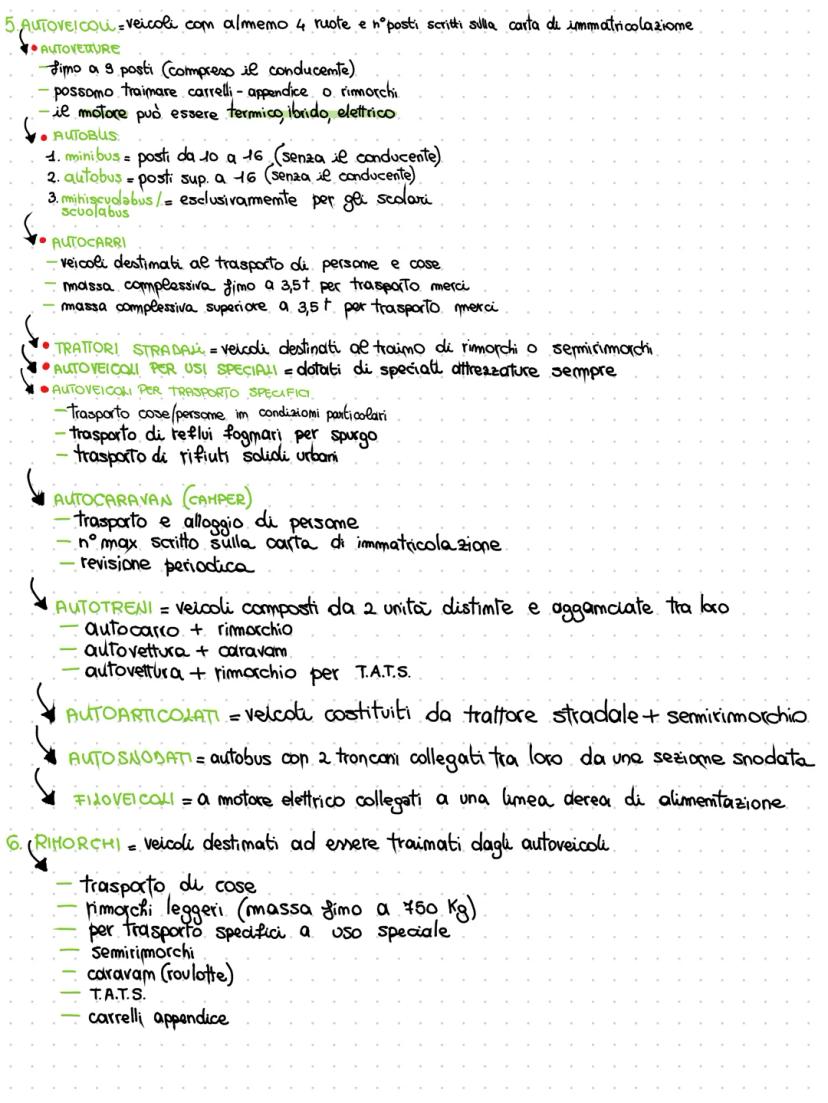 5. AUTOVEICOLI = veicoli con almeno 4 ruote e n° posti scritti sulla carta di immatricolazione
• AUTOVETTURE
- fino a 9 posti (compreso il conducente)
- possono trainare carrelli - appendice o rimorchi
- il motore può essere termico, ibrido, elettrico
• AUTOBUS:
1. minibus = posti da 10 a 16 (senza il conducente)
2. autobus = posti sup. a 16 (senza il conducente)
3. miniscuolabus/ = esclusivamente per gli scolari
scuolabus
• AUTOCARRI
- veicoli destinati al trasporto di persone e cose
- massa complessiva fino a 3,5t per trasporto merci
- massa complessiva superiore a 3,5t per trasporto merci
• TRATTORI STRADALI = veicoli destinati al traino di rimorchi o semirimorchi
• AUTOVEICOLI PER USI SPECIALI = dotati di speciali attrezzature sempre
• AUTOVEICOLI PER TRASPORTO SPECIFICI
- trasporto cose/persone in condizioni particolari
- trasporto di reflui fognari per spurgo
- trasporto di rifiuti solidi urbani
AUTOCARAVAN (CAMPER)
- trasporto e alloggio di persone
- n° max scritto sulla carta di immatricolazione
- revisione periodica
AUTOTRENI = veicoli composti da 2 unità distinte e agganciate tra loro
- autocarro + rimorchio
- autovettura + caravan
- autovettura + rimorchio per T.A.T.S.
AUTOARTICOLATI = veicoli costituiti da trattore stradale + semirimorchio
AUTOSNODATI = autobus con 2 tronconi collegati tra loro da una sezione snodata
FILOVEICOLI = a motore elettrico collegati a una linea aerea di alimentazione
6. RIMORCHI = veicoli destinati ad essere trainati dagli autoveicoli
- trasporto di cose
- rimorchi leggeri (massa fino a 750 Kg)
- per trasporto specifici a uso speciale
- semirimorchi
- caravan (roulotte)
- T.A.T.S.
- carrelli appendice